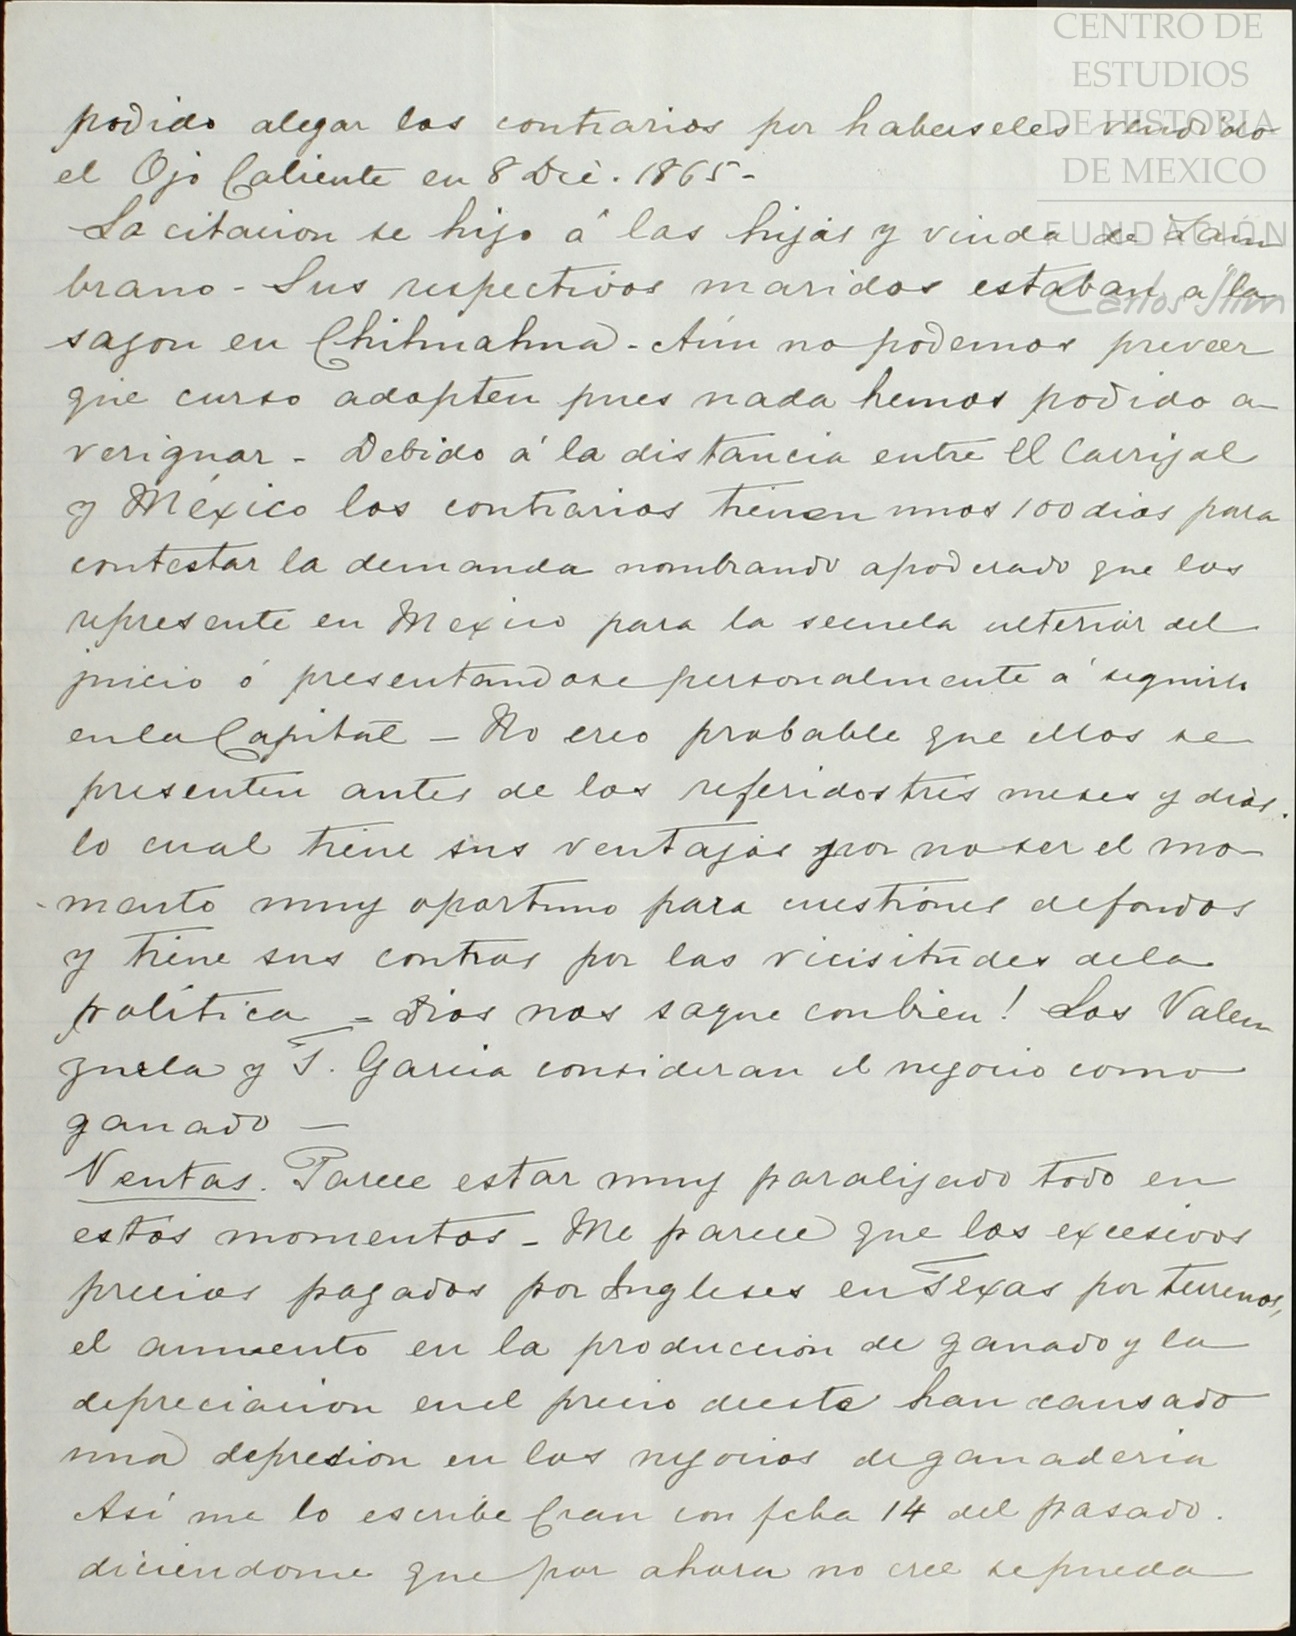 CENTRO DE
ESTUDIOS
DE HISTORIA
DE MEXICO
FUNDACIÓN
Carlos Slim
podido alegar los contrarios por haberseles vendido
el Ojo Caliente en 8 Dic. 1865-
La citacion se hizo á las hijas y viuda de Zam
brano - Sus respectivos maridos estaban a la
sazon en Chihuahua - Aún no podemos preveer
que curso adopten pues nada hemos podido a
veriguar - Debido á la distancia entre El Carrizal
y México los contrarios tienen unos 100 dias para
contestar la demanda nombrando apoderado que los
represente en Mexico para la secuela ulterior del
juicio ó presentandose personalmente á seguirlo
en la Capital - No creo probable que ellos se
presenten antes de los referidos tres meses y dias.
lo cual tiene sus ventajas por no ser el mo
mento muy oportuno para cuestiones de fondos
y tiene sus contras por las vicisitudes de la
politica - Dios nos saque con bien! Los Valen
zuela y T. Garcia consideran el negocio como
ganado -
Ventas. Parece estar muy paralizado todo en
estos momentos - Me parece que los excesivos
precios pagados por Ingleses en Texas por terrenos,
el aumento en la produccion de ganado y la
depreciacion en el precio de este han causado
una depresion en los negocios de ganaderia
Así me lo escribe Cran con fcha 14 del pasado.
diciendome que por ahora no cree se pueda